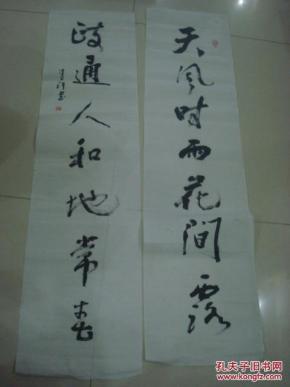 天风时雨花间露
政通人和地常春
孔夫子旧书网